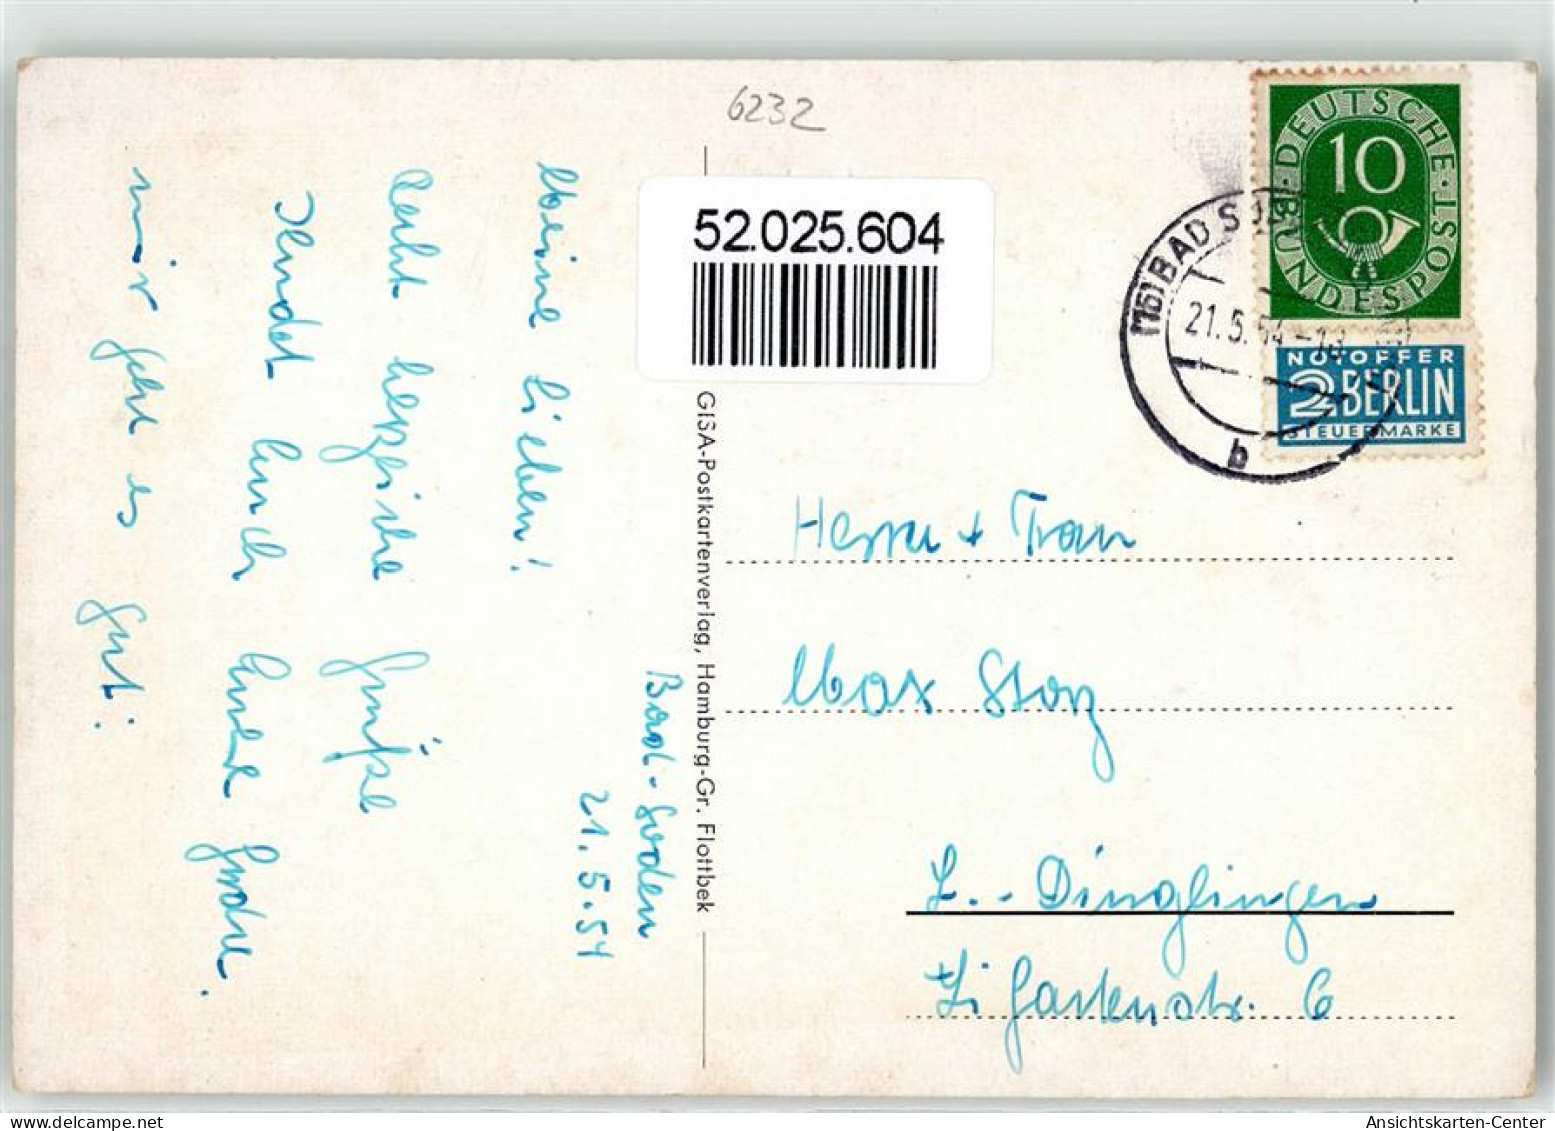 6232
52.025.604
Bad-Soden
21.5.54
Meine Lieben!
Recht herzliche Grüße
sendet Euch Eure Gudrun.
mir geht es gut!
GISA-Postkartenverlag, Hamburg-Gr. Flottbek
DEUTSCHE BUNDESPOST
10
NOTOPFER
2 BERLIN
STEUERMARKE
(16) BAD SO
21.5.54-18
b
Herrn + Frau
Max Storz
L.-Dinglingen
Gartenstr. 6
Ansichtskarten-Center